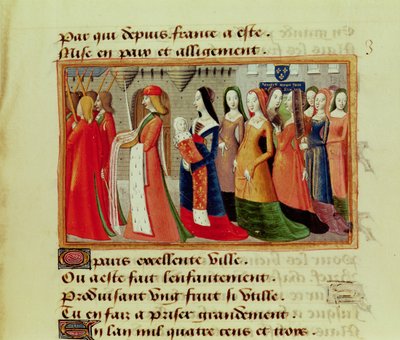 Par qui depuis france a este
3
Mise en paix et alligement.
O paris excellente ville.
Ou a este fait lenfantement.
Produisant Ung fruit si utille.
Tu en fais a priser grandement.
En lan mil quatre cens et troys.